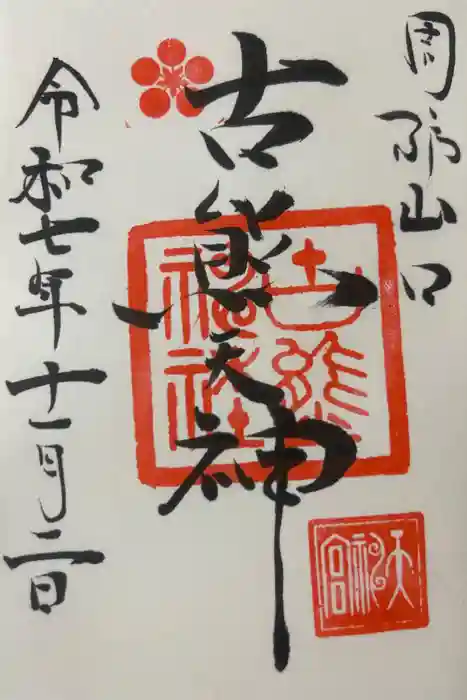 周防山口
古熊天神
古熊神社
天神宮
令和七年十一月二日